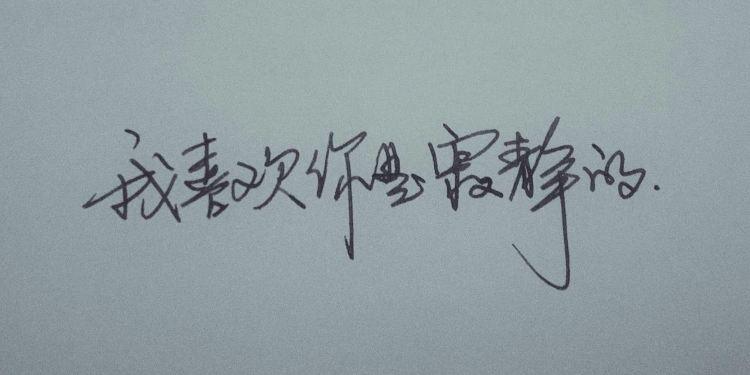 我喜欢你是寂静的.